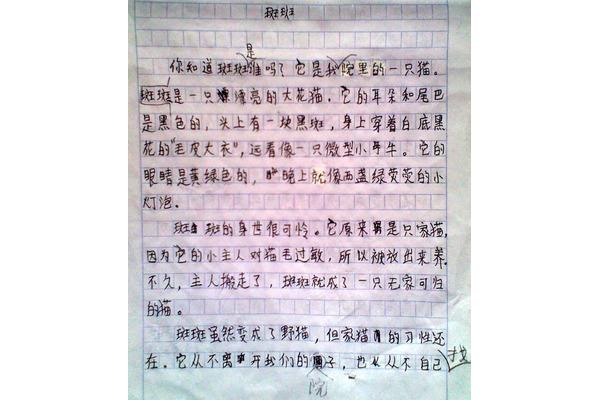 斑斑
你知道斑斑是谁吗?它是我院里的一只猫。
斑斑是一只漂亮的大花猫。它的耳朵和尾巴
是黑色的,头上有一块黑斑,身上穿着白底黑
花的“毛皮大衣”,远看像一只微型小牛。它的
眼睛是黄绿色的,晚上就像两盏绿荧荧的小
灯泡。
斑斑的身世很可怜。它原来是只家猫,
因为它的小主人对猫毛过敏,所以被放出来养。
不久,主人搬走了,斑斑就成了一只无家可归
的猫。
斑斑虽然变成了野猫,但家猫的习性还
在。它从不离开我们的院子,也从不自己找